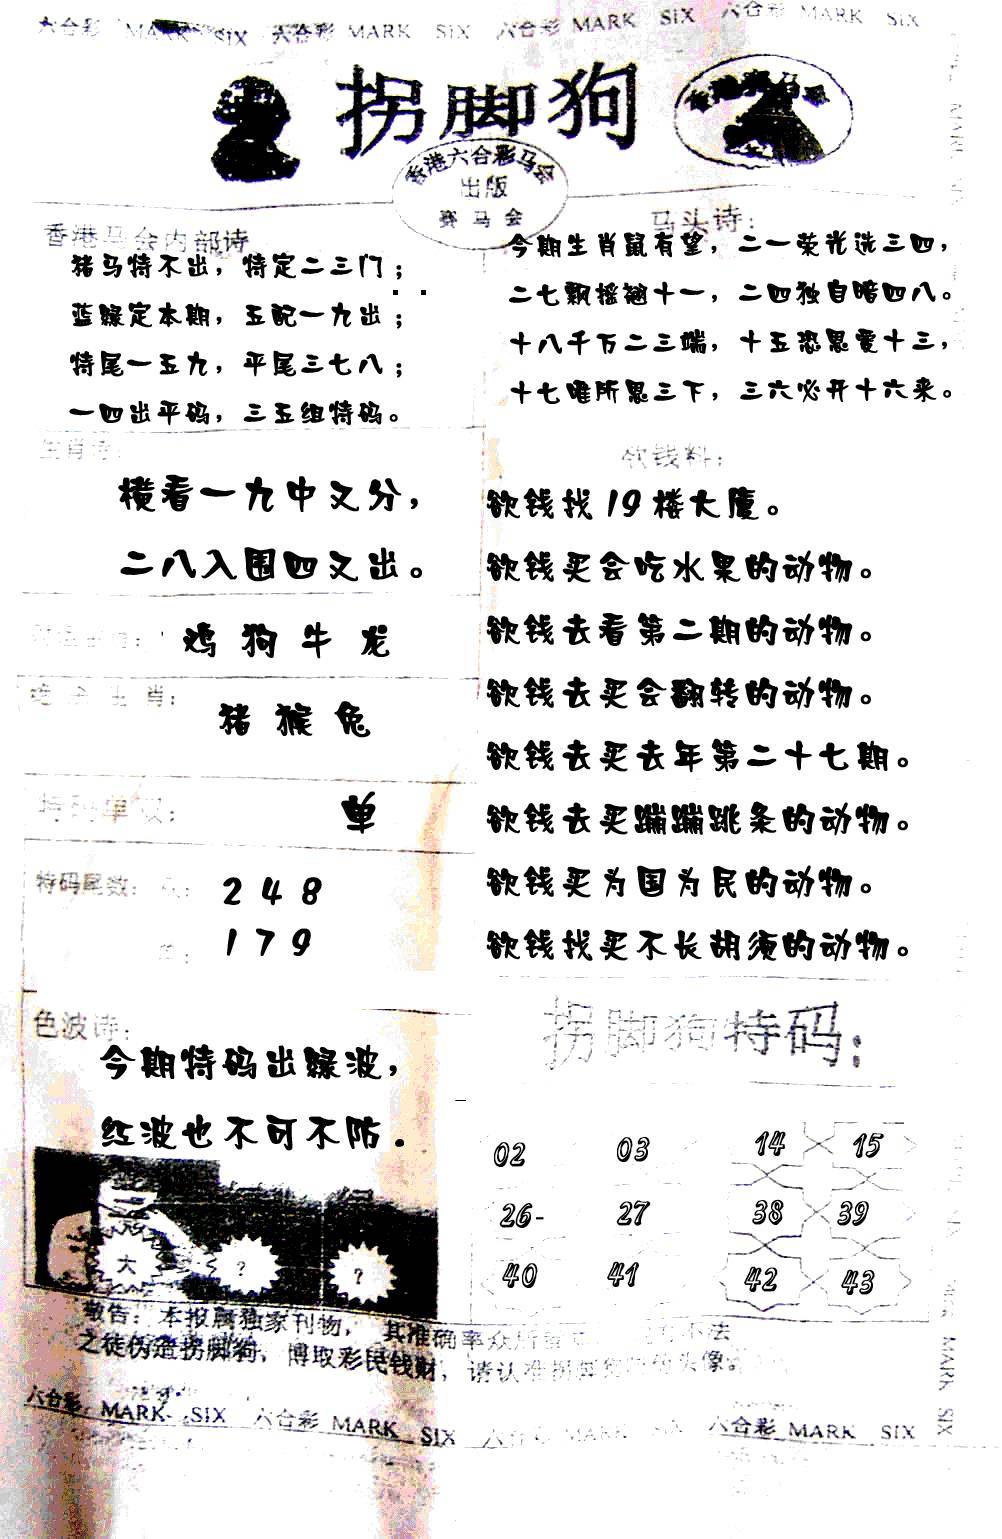 六合彩 MARK SIX 六合彩 MARK SIX 六合彩 MARK SIX 六合彩 MARK SIX
拐脚狗
香港六合彩马会
出版
赛马会
香港马会内部诗
猪马特不出，特定二三门；
蓝绿定本期，五配一九出；
特尾一五九，平尾三七八；
一四出平码，三五组特码。
马头诗：
今期生肖鼠有望，二一荣光选三四，
二七飘摇翘十一，二四独自暗四八。
十八千万二三端，十五恐思爱十三，
十七唯所思三下，三六必开十六来。
生肖诗：
横看一九中又分，
二八入围四又出。
鸡 狗 牛 龙
绝杀生肖：
猪 猴 兔
特码单双：
单
特码尾数：
2 4 8
1 7 9
色波诗：
今期特码出绿波，
红波也不可不防．
欲钱料：
欲钱找19楼大厦。
欲钱买会吃水果的动物。
欲钱去看第二期的动物。
欲钱去买会翻转的动物。
欲钱去买去年第二十七期。
欲钱去买蹦蹦跳条的动物。
欲钱买为国为民的动物。
欲钱找买不长胡须的动物。
拐脚狗特码：
02 03 14 15
26- 27 38 39
40 41 42 43
大 ? ?
敬告：本报属独家刊物，其准确率众所皆 不法
之徒伪造拐脚狗，博取彩民钱财，请认准拐脚狗 头像。
六合彩 MARK SIX 六合彩 MARK SIX 六合彩 MARK SIX 六合彩 MARK SIX
MARK SIX